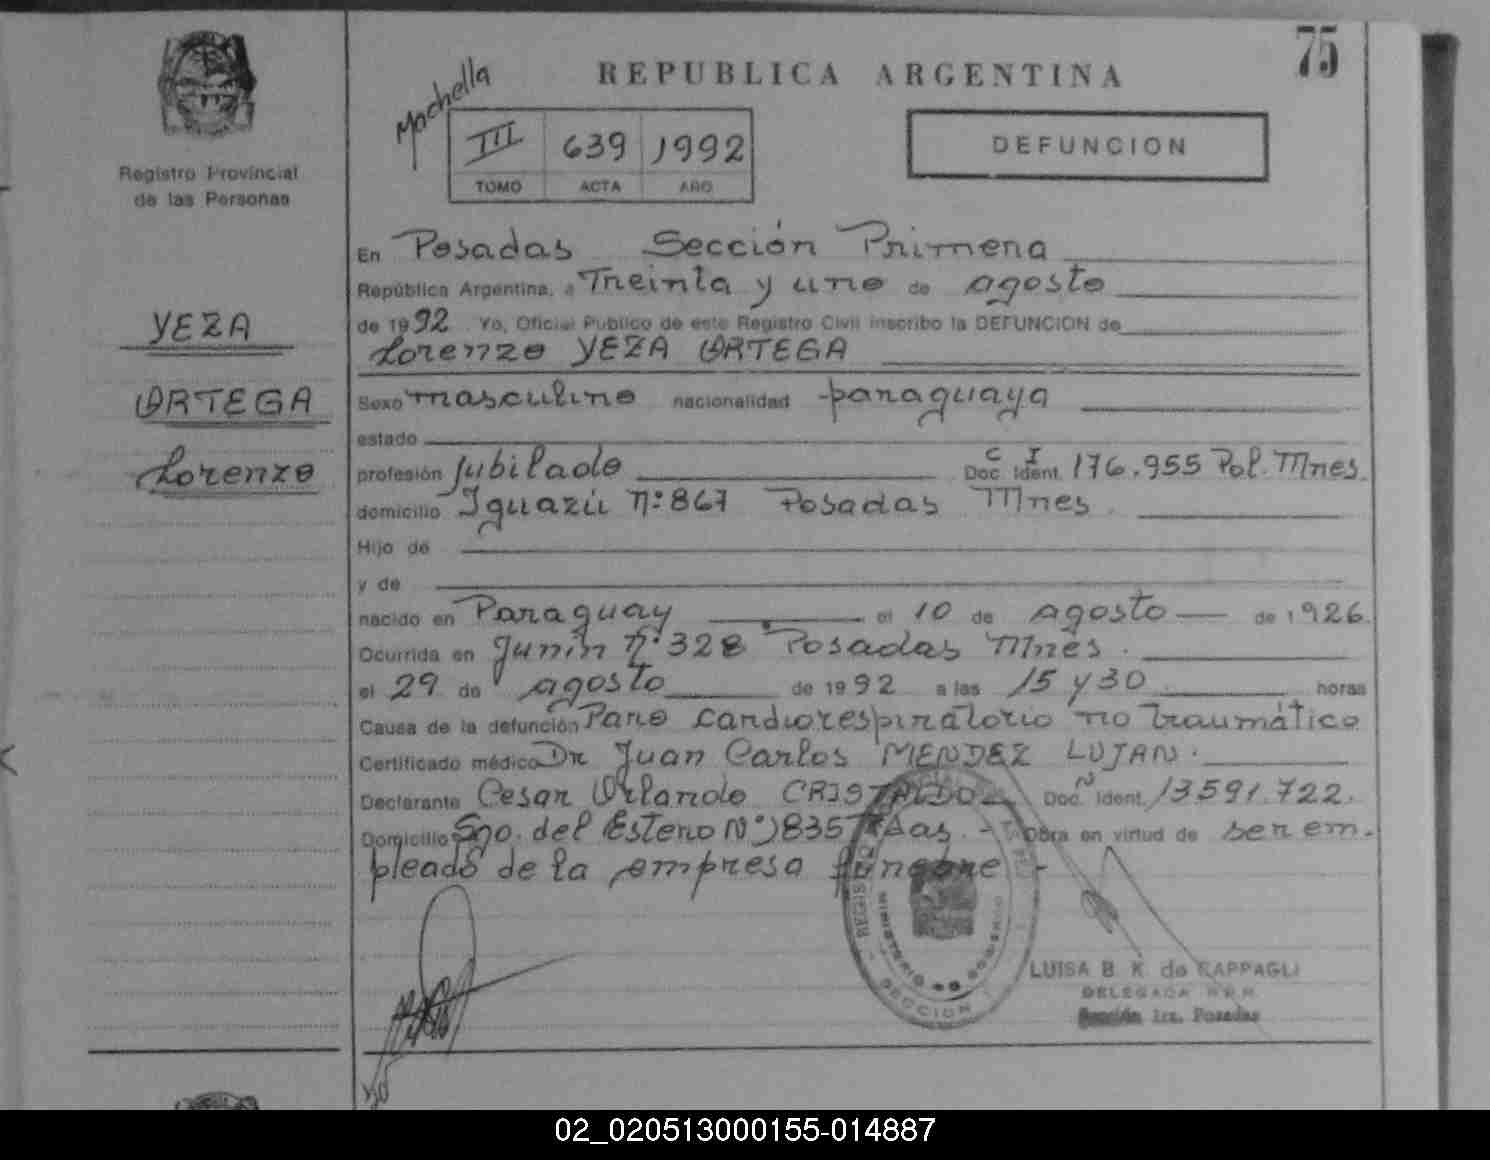 75
REPUBLICA ARGENTINA
Machella
III 639 1992
TOMO ACTA AÑO
DEFUNCION
Registro Provincial
de las Personas
YEZA
ORTEGA
Lorenzo
En Posadas Sección Primera
República Argentina, a Treinta y uno de agosto
de 1992. Yo, Oficial Público de este Registro Civil inscribo la DEFUNCION de
Lorenzo YEZA ORTEGA
Sexo masculino nacionalidad paraguaya
estado
profesión Jubilado C I Doc. Ident. 176.955 Pol. Mnes.
domicilio Iguazú Nº 867 Posadas Mnes.
Hijo de
y de
nacido en Paraguay el 10 de agosto de 1926.
Ocurrida en Junín Nº 328 Posadas Mnes.
el 29 de agosto de 1992 a las 15 y 30 horas
Causa de la defunción Paro cardiorespiratorio no traumático
Certificado médico Dr Juan Carlos MENDEZ LUJAN.
Declarante Cesar Orlando CRISTALDO Doc. Ident. 13591.722.
Domicilio Sgo. del Estero Nº 1835 Pdas. - Obra en virtud de ser em-
pleado de la empresa fúnebre -
MINISTERIO DE GOBIERNO
SECCION 1
LUISA B. K. de CAPPAGLI
DELEGADA R.P.P.
Sección 1ra. Posadas
02_020513000155-014887